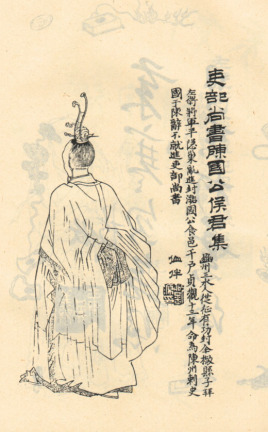 吏部尚書陳國公侯君集
州三水人從征有功封全椒縣子拜
左衛將軍平隱巢亂進封潞國公食邑千戶貞觀十年命為陳州刺史
國于陳辭不就進吏部尚書